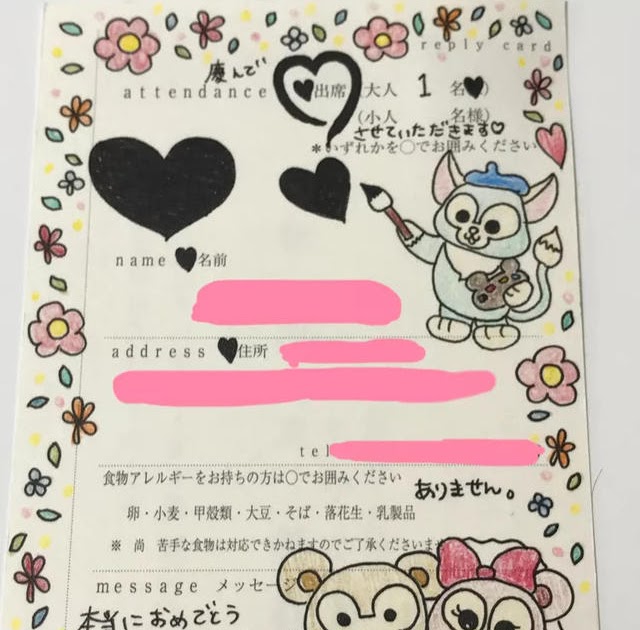 reply card
慶んで
attendance 出席 (大人 1 名 )
(小人 名様)
させていただきます♡
*いずれかを○でお囲みください
name 名前
address 住所
tel
食物アレルギーをお持ちの方は○でお囲みください
ありません。
卵・小麦・甲殻類・大豆・そば・落花生・乳製品
※ 尚 苦手な食物は対応できかねますのでご了承くださいませ
message メッセージ
本当におめでとう